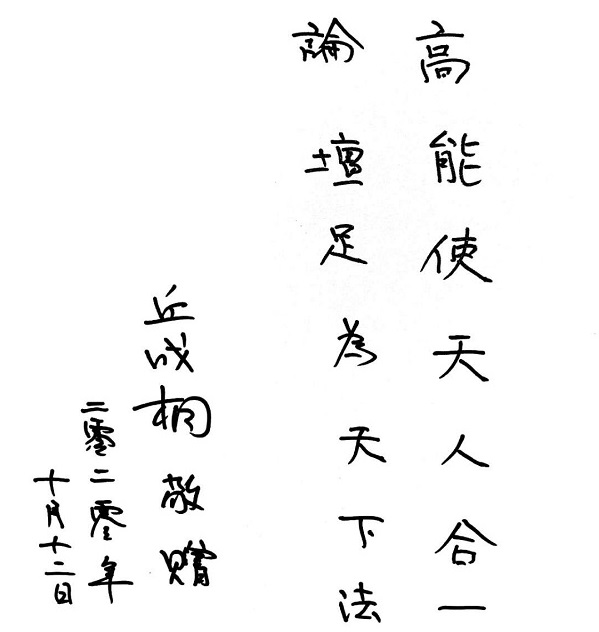 高能使天人合一
論壇足為天下法
丘成桐敬贈
二零二零年
十月十二日